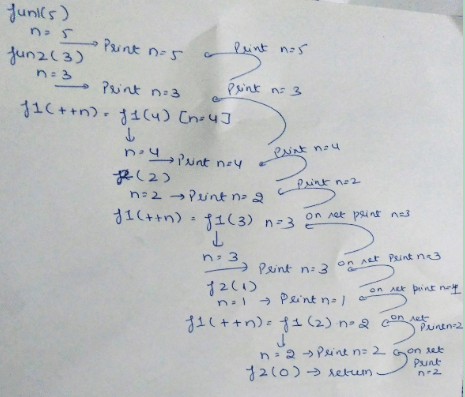 fun1(5)
n = 5
→ Print n=5 Print n=5
fun2(3)
n=3
→ Print n=3 Print n=3
f1(++n) = f1(4) [n=4]
n=4
→ Print n=4 Print n=4
f2(2)
n=2 → Print n=2 Print n=2
f1(++n) = f1(3) n=3 on ret print n=3
n=3
→ Print n=3 on ret Print n=3
f2(1)
n=1 → Print n=1 on ret print n=1
f1(++n) = f1(2) n=2 on ret Print n=2
n=2 → Print n=2 on ret Print n=2
f2(0) → return